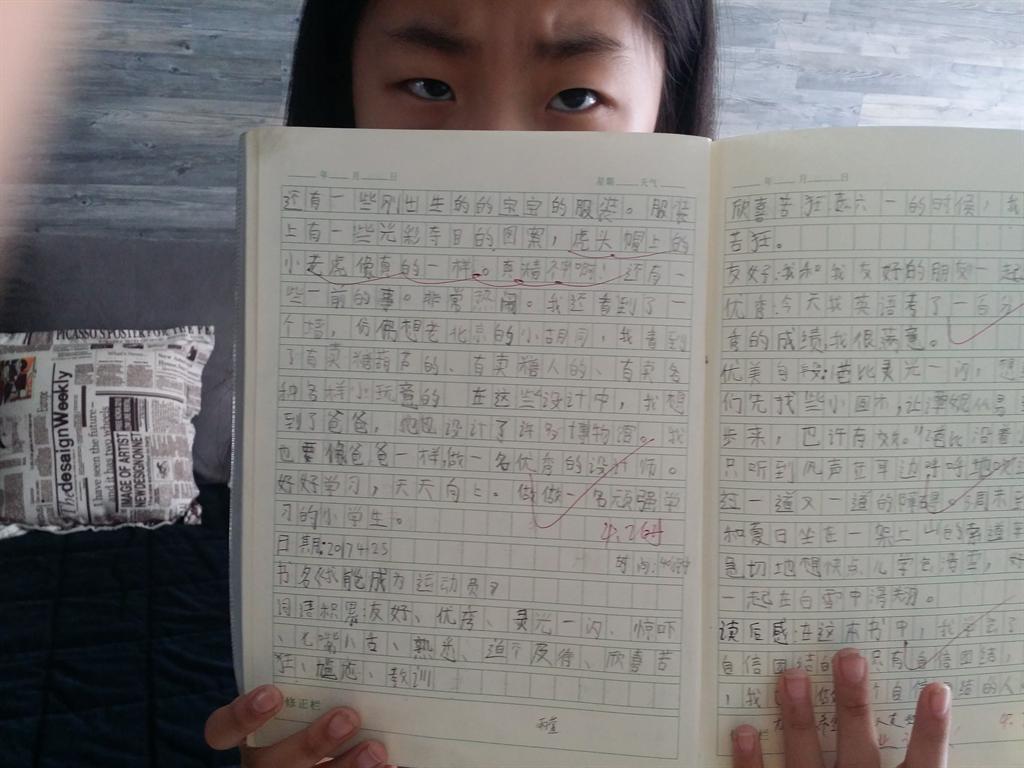 PICASSO
the desaignWeekly
I have seen the future
and it has two wheels
IMAGE OF ARTIST
NEW DESIGN ON NET
年 月 日 星期 天气
还有一些刚出生的的宝宝的服装。服装
上有一些光彩夺目的图案,虎头帽上的
小老虎像真的一样。真精孕啊!还有一
些一前的事。非常热闹。我还看到了一
个墙,仿佛想老北京的小胡同,我看到
了有卖糖葫芦的、有卖糖人的、有卖各
种各样小玩意的 在这些设计中,我想
到了爸爸,他也设计了许多博物馆。我
也要像爸爸一样,做一名优秀的设计师。
好好学习,天天向上。做做一名顽强学
习的小学生。
4.26
日期:2017425
时间:40分钟
书名《谁能成为运动员?
词语积累友好、优秀、灵光一闪、惊吓
、七嘴八舌、熟悉、迫不及待、欣喜苦
狂、尴尬、教训
修正栏
年 月 日
欣喜苦狂:六一的时候,我
苦狂。
友好:我和我友好的朋友一起
优秀:今天我英语考了一百分
秀的成绩我很满意。
优美自 芭比灵光一闪,想
们先找些小圆木,让
步来,也许有效。"芭比沿着
只听到风声在耳边呼呼地吹
过一道又一道的障碍。周末
和夏日坐在一架上山的索道车
急切地想快点儿学会滑雪,好
一起在白雪中滑翔。
读后感:在这本书中,我学会了
自信团结的 只有自信团结,
,我 个自信 结的人